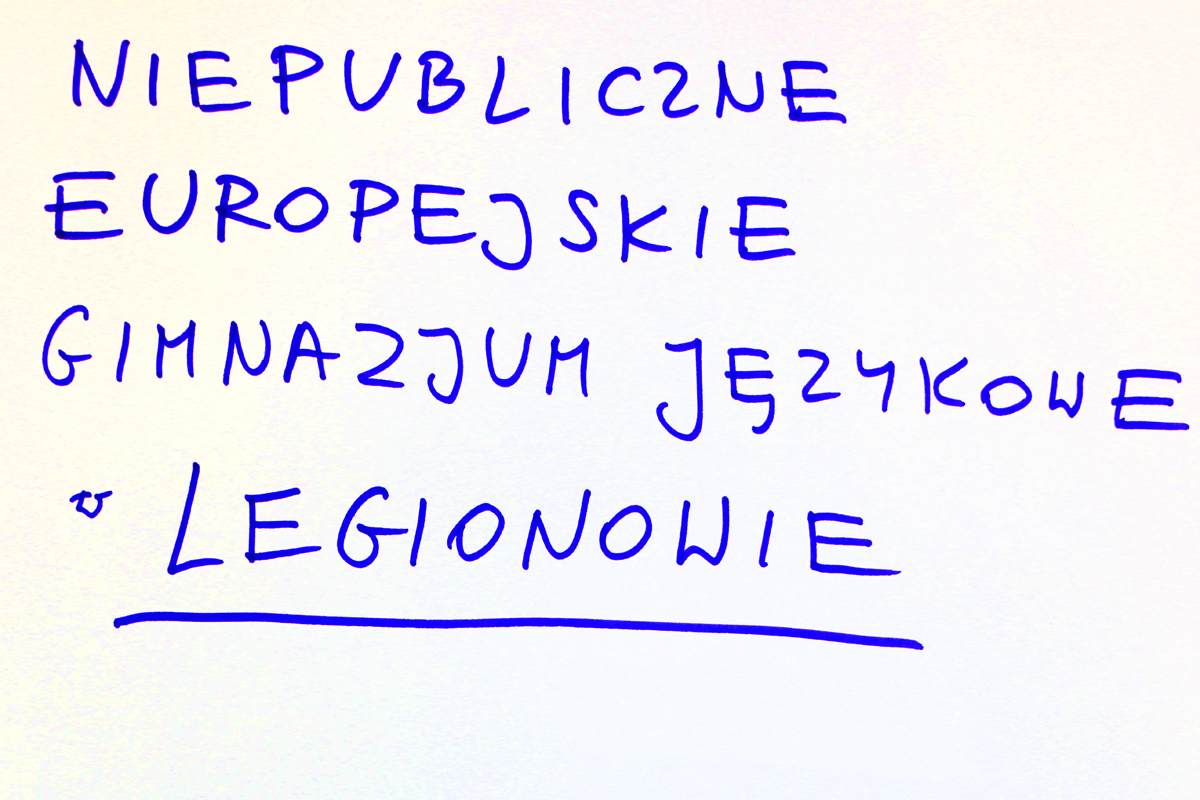 NIEPUBLICZNE
EUROPEJSKIE
GIMNAZJUM JĘZYKOWE
w LEGIONOWIE